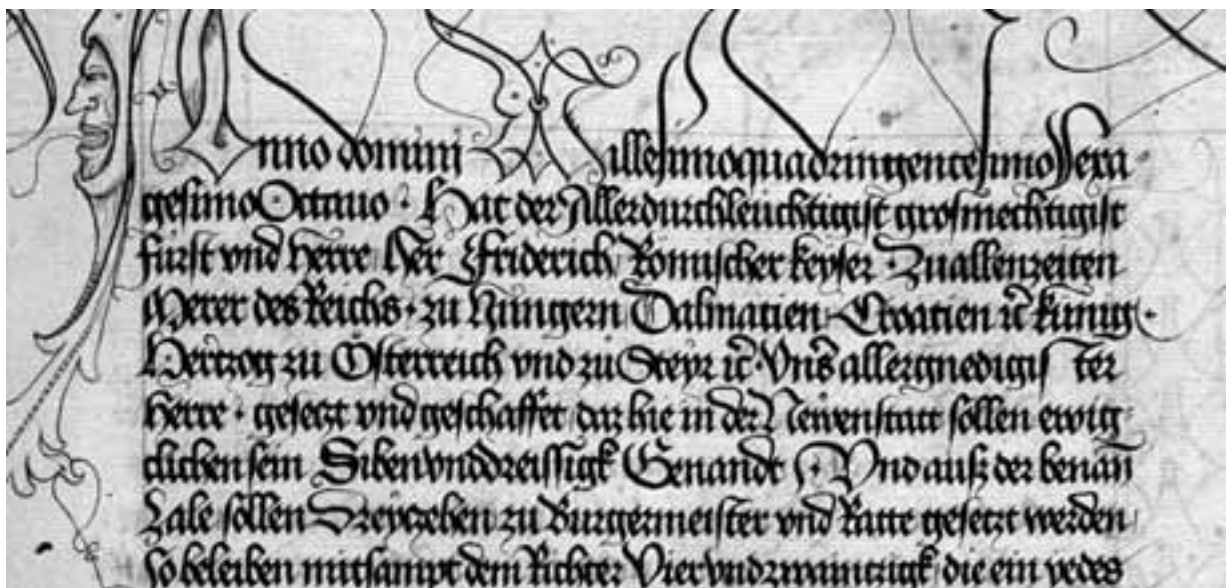 Anno domini Millesimoquadringentesimo Sexa
gesimo Octauo · Hat der Allerdurchleuchtigist grosmechtigist
fürst vnd Herre Her Friderich Römischer keyser · Zuallenzeiten
Merer des Reichs · zu Hungern Dalmatien Croatien ꝛc̃ künig ·
Hertzog zu Österreich vnd zu Steyr ꝛc̃ · Vns̃ allergnedigister
Herre · gesetzt vnd geschaffet daz hie in der Newenstatt söllen ewig
clichen sein Sibenvnddreissigk Genandt · Vnd auß der benañ
Zale söllen Dreyzehen zu Burgermeister vnd Ratte gesetzt werden
so beleiben mitsampt dem Richter Viervndzwaintzigk die ein yedes